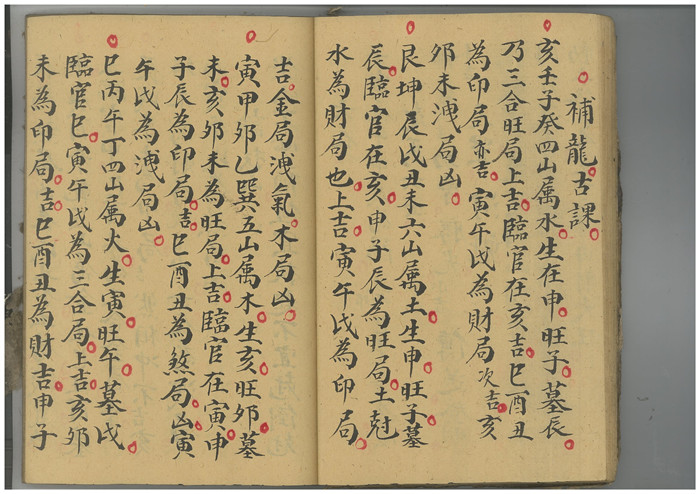 補龍古課
亥壬子癸四山属水生在申旺子墓辰
乃三合旺局上吉臨官在亥吉巳酉丑
為印局亦吉寅午戌為財局次吉亥
夘未洩局凶
艮坤辰戌丑未六山属土生申旺子墓
辰臨官在亥申子辰為旺局土尅
水為財局也上吉寅午戌為印局
吉金局洩氣木局凶
寅甲夘乙巽五山属木生亥旺夘墓
未亥夘未為旺局上吉臨官在寅申
子辰為印局吉巳酉丑為煞局凶寅
午戌為洩局凶
巳丙午丁四山属火生寅旺午墓戌
臨官巳寅午戌為三合局上吉亥夘
未為印局吉巳酉丑為財吉申子